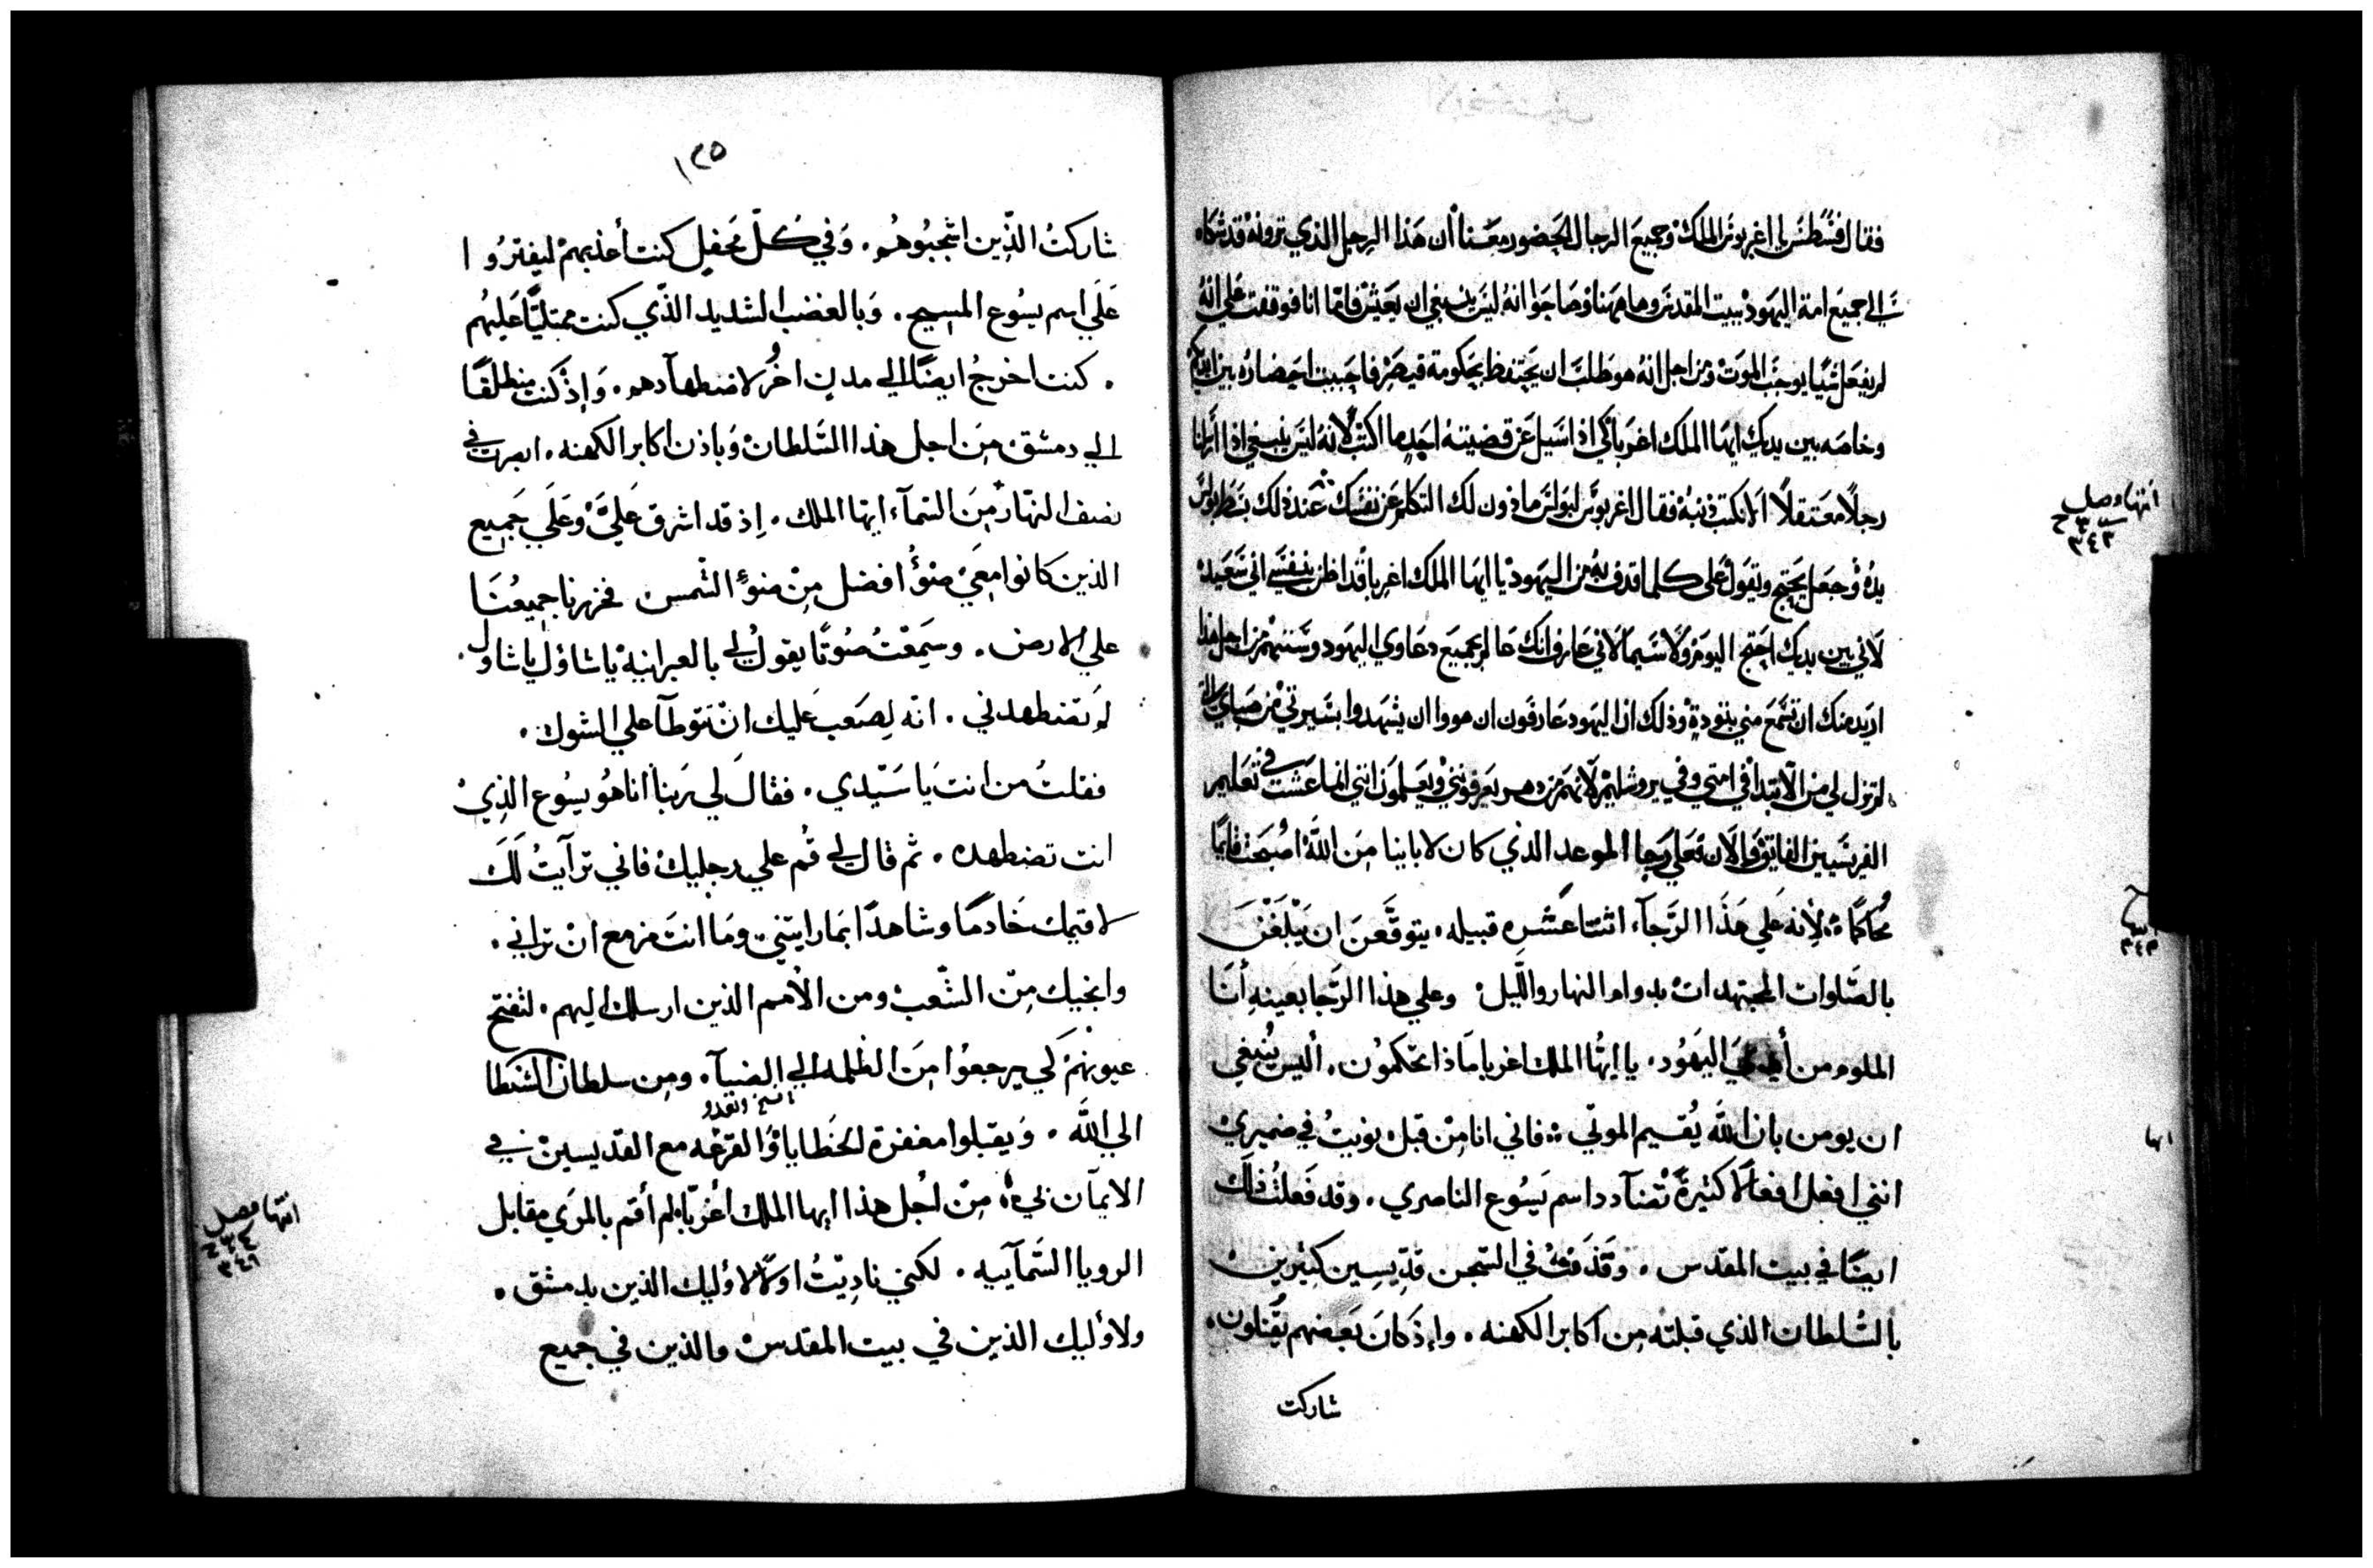 فقال فسطس يا اغربوس الملك وجميع الرجال الحضور معنا أن هذا الرجل الذي ترونه قد شكاه
الي جميع امة اليهود ببيت المقدس وهاهنا وصاحوا انه ليس ينبغي ان يعيش فاما انا فوقفت علي انه
لم يفعل شيا يوجب الموت ومن اجل انه هو طلب ان يحتفظ بحكومة قيصر فاحببت احضاره بين ايديكم
وخاصه بين يديك ايها الملك اغربا لكي اذا سيل عن قضيته اجد ما اكتب لانه ليس ينبغي اذا أرسلنا
رجلاً معتقلاً ألا نكتب ذنبه فقال اغربوس لبولس ماذون لك التكلم عن نفسك عند ذلك بسط بولس
يده وجعل يحتج ويقول على كلما اقدف به من اليهود يا ايها الملك اغربا قد اظن بنفسي اني سعيد
لاني بين يديك احتج اليوم ولا سيما لاني عارف انك عالم بجميع دعاوي اليهود وسننهم من اجل هذا
اريد منك ان تسمع مني بتودة وذلك ان اليهود عارفون ان هووا ان يشهدوا بسيرتي من صباي التي
لم تزل لي من الابتدا في امتي وفي يروشليم لانهم من دهر يعرفونني ويعلمون انني انما عشت في تعليم
الفريسيين الفايق والان فعلي رجا الموعد الذي كان لابابينا من الله اصبحت قايمًا
محاكمًا لأنه علي هذا الرجآء اثنتا عشره قبيله يتوقعن ان يبلغن
بالصلوات المجتهدات بدوام النهار والليل وعلي هذا الرجا بعينه أنا
الملوم من أيدي اليهود. يا ايها الملك اغربا ماذا تحكمون. أليس ينبغي
ان يومن بان الله يقيم الموتي فاني انا من قبل نويت في ضميري
انني افعل افعالاً كثيرة تضآدد اسم يسوع الناصري. وقد فعلت ذلك
ايضًا في بيت المقدس. وقذفت في السجن قديسين كثيرين
بالسلطان الذي قبلته من اكابر الكهنه. وإذ كان بعضهم يقتلون.
شاركت
انتها فصل
٣٤٣
٣٤٣
انها
١٣٥
شاركت الذين اشجبوهم. وفي كل محفل كنت أعذبهم ليفتروا
على اسم يسوع المسيح. وبالغضب الشديد الذي كنت ممتليًا عليهم
. كنت اخرج ايضًا الي مدن اخر لاضطهآدهم. وإذ كنت منطلقًا
الي دمشق من اجل هذا السلطان وباذن اكابر الكهنه. ابصرت في
نصف النهار من السمآء ايها الملك. إذ قد اشرق عليّ وعلي جميع
الذين كانوا معي ضوُ افضل من ضوُ الشمس فخررنا جميعنا
علي الارض. وسمعت صوتًا يقول لي بالعبرانية يا شاول يا شاول.
لم تضطهدني. انه لصعب عليك ان تتوطآ علي الشوك.
فقلت من انت يا سيدي. فقال لي ربنا أنا هو يسوع الذي
انت تضطهده. ثم قال لي قم علي رجليك فاني ترآيت لك
لاقيمك خادمًا وشاهدًا بما رايتني وما انت مزمع ان تراني.
وانجيك من الشعب ومن الأمم الذين ارسلك اليهم. لتفتح
عيونهم كي يرجعوا من الظلمه الي الضيآ. ومن سلطان الشيطان
الي الله. ويقبلوا مغفرة الخطايا والقرعه مع القديسين في
الايمآن بي من اجل هذا ايها الملك اغربا لم أقم بالمري مقابل
الرويا السمآييه. لكني ناديت اولاً لاوليك الذين بدمشق.
ولاوليك الذين في بيت المقدس والذين في جميع
انتها فصل